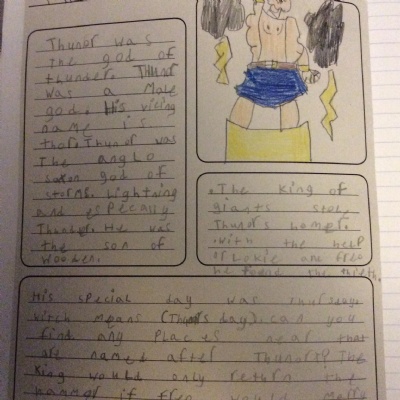 Thunor was
the god of
thunder. Thunor
was a male
god. His vicing
name is
thor. Thunor was
The anglo
saxon god of
storms. Lightning
and especally
Thunder. He was
the son of
wooden.
.The King of
giants stole
Thunor's homer.
.with the help
of Lokie and freo
he found the thieth.
His special day was thursday
witch means (Thunor's day). can you
find any places near that
are named after Thunor? The
King would only return the
hammer if freo would merry